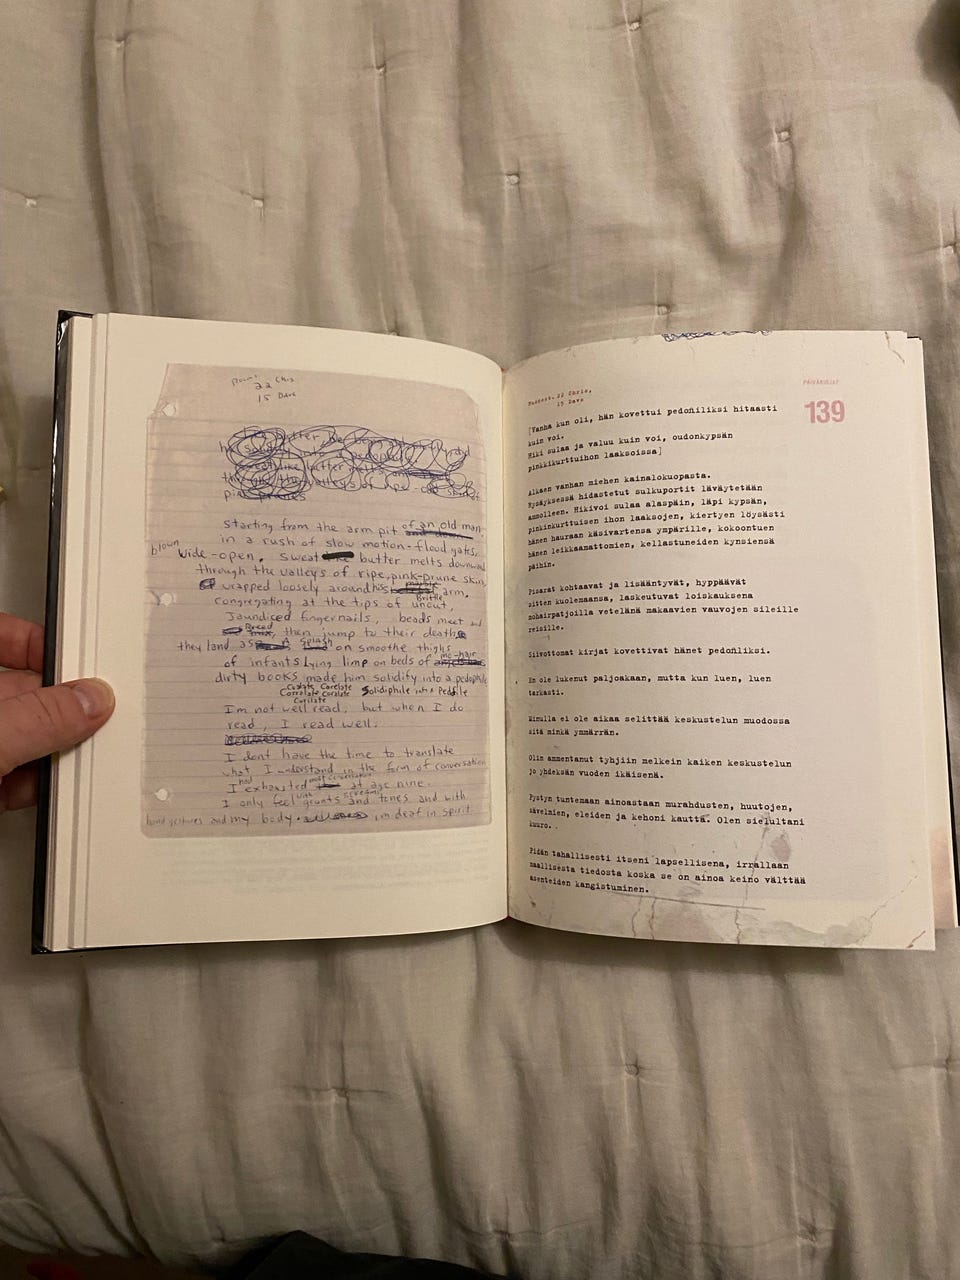 22 Chris
15 Dave
starting from the arm pit of an old man
in a rush of slow motion-flood gates,
blown
wide-open. Sweat butter melts downward
through the valleys of ripe, pink-prune skin
wrapped loosely around his arm.
Brittle
congregating at the tips of uncut,
Jaundiced fingernails, beads meet and
Breed
then jump to their death
they land as A Splash on smoothe thighs
of infants lying limp on beds of mo-hair
dirty books made him solidify into a pedophile
Corolate Corelate Solidiphile into Pedfile
I'm not well read, but when I do
read, I read well.
I dont have the time to translate
what I understand in the form of conversation
I had exhausted most conversation at age nine.
I only feel with grunts screams and tones and with
hand gestures and my body. im deaf in spirit
PÄIVÄKIRJAT
139
22 Chris,
15 Dave
[Vanha kun oli, hän kovettui pedofiiliksi hitaasti
kuin voi.
Hiki sulaa ja valuu kuin voi, oudonkypsän
pinkkikurttuihon laaksoissa]
Alkaen vanhan miehen kainalokuopasta.
Rysäyksessä hidastetut sulkuportit läväytetään
ammolleen. Hikivoi sulaa alaspäin, läpi kypsän,
pinkinkurttuisen ihon laaksojen, kiertyen löysästi
hänen hauraan käsivartensa ympärille, kokoontuen
hänen leikkaamattomien, kellastuneiden kynsiensä
päihin.
Pisarat kohtaavat ja lisääntyvät, hyppäävät
sitten kuolemaansa, laskeutuvat loiskauksena
mohairpatjoilla vetelänä makaavien vauvojen sileille
reisille.
Siivottomat kirjat kovettivat hänet pedofiliksi.
En ole lukenut paljoakaan, mutta kun luen, luen
tarkasti.
Minulla ei ole aikaa selittää keskustelun muodossa
sitä minkä ymmärrän.
Olin ammentanut tyhjiin melkein kaiken keskustelun
jo yhdeksän vuoden ikäisenä.
Pystyn tuntemaan ainoastaan murahdusten, huutojen,
sävelmien, eleiden ja kehoni kautta. Olen sielultani
kuuro.
Pidän tahallisesti itseni lapsellisena, irrallaan
maallisesta tiedosta koska se on ainoa keino välttää
asenteiden kangistuminen.